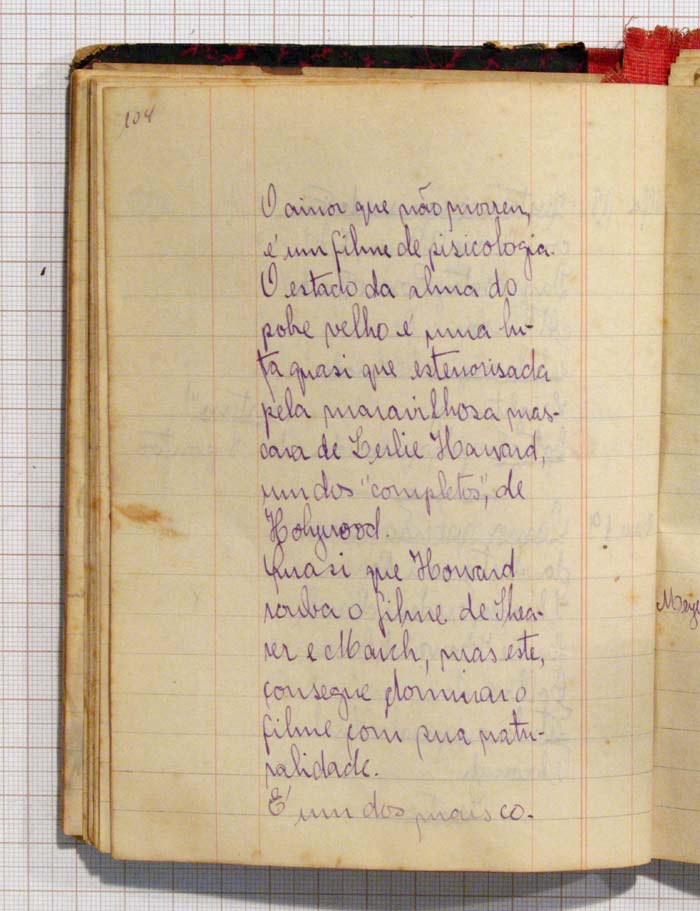 104
O amor que não morreu,
é um filme de pisicologia.
O estado da alma do
pobre velho é uma lu-
ta quasi que esteriorisada
pela maravilhosa mas-
cara de Leslie Haward,
um dos "completos", de
Holywood.
Quasi que Howard
rouba o filme de Shea-
rer e March, mas este,
consegue dominar o
filme com sua natu-
ralidade.
É um dos mais co-